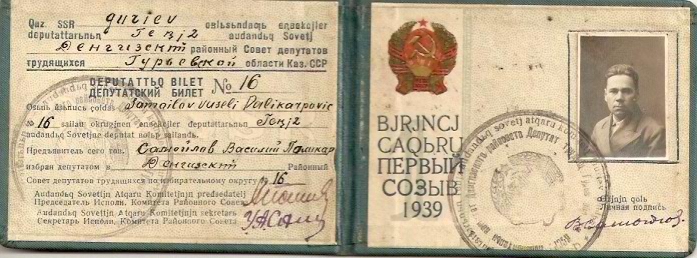 Qaz. SSR guriev oblьsьndaƣь eꞑbekçiler
deputattarьnьꞑ Teꞑiz audandьq Sovetj
Денгизскт районный Совет депутатов
трудящихся Гурьевской области Каз. ССР
DEPUTATTЬQ BILET
ДЕПУТАТСКИЙ БИЛЕТ № 16
Osьnь ustauçь çoldas Samoilov Vaseli Polikarpovic
№ 16 sailau okruginen eꞑbekçiler deputattarьnьꞑ Teꞑiz
audandьq Sovetjne deputat bolьp sailandь.
Предъявитель сего тов. Самойлов Василий Поликар
избран депутатом в Денгизскт Районный
Совет депутатов трудящихся по избирательному округу № 16
Audandьq Sovettjn Atqaru Komitetjnjn predsedatelj
Председатель Исполн. Комитета Районного Совета
Audandьq Sovettjn Atqaru Komitetjnjn sekretarь
Секретарь Исполн. Комитета Районного Совета
BJRJNCJ
CAQЬRU
ПЕРВЫЙ
СОЗЫВ
1939
Bjzjnjn qolь
Личная подпись
В. Самойлов